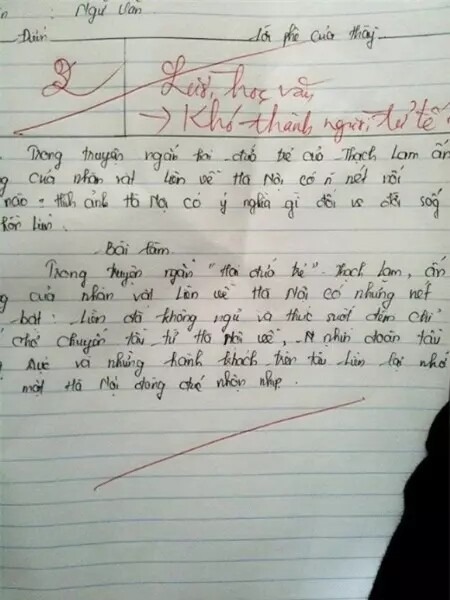 : Ngữ Văn
Điểm
Lời phê của thầy
2
Lười học văn
→ Khó thành người tử tế
Trong truyện ngắn hai đứa trẻ của Thạch Lam ấn
g của nhân vật Liên về Hà Nội có n nét nổi
nào - hình ảnh Hà Nội có ý nghĩa gì đối vs đời sống
Liên.
Bài làm
Trong truyện ngắn "Hai đứa trẻ" Thạch Lam, ấn
g của nhân vật Liên về Hà Nội có những nét
bật: Liên đã không ngủ và thức suốt đêm chỉ
chờ chuyến tàu từ Hà Nội về, nhìn đoàn tàu
rực và những hành khách trên tàu Liên lại nhớ
một Hà Nội đông đúc nhộn nhịp.